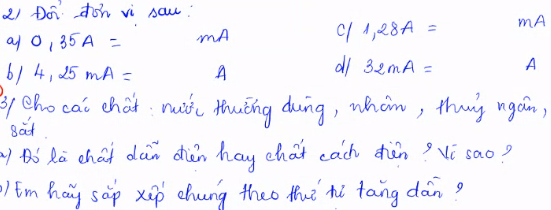 2/ Đổi đơn vị sau:
a/ 0,35A = mA
c/ 1,28A = mA
b/ 4,25 mA = A
d/ 32mA = A
3/ Cho các chất: nước thường dùng, nhôm, thuỷ ngân,
sắt
a/ Đó là chất dẫn điện hay chất cách điện? Vì sao?
b/ Em hãy sắp xếp chúng theo thứ tự tăng dần?